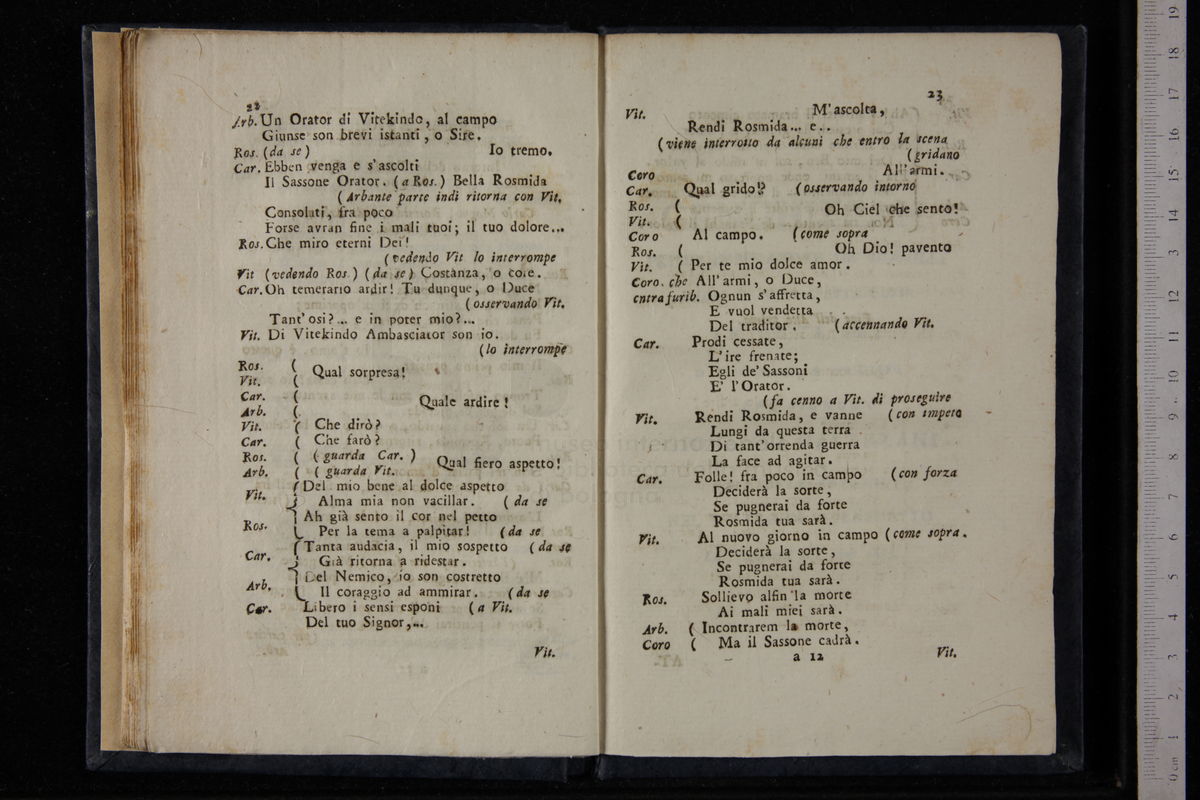 22
Arb. Un Orator di Vitekindo, al campo
Giunse son brevi istanti, o Sire.
Ros. (da se) Io tremo.
Car. Ebben venga e s'ascolti
Il Sassone Orator. (a Ros.) Bella Rosmida
(Arbante parte indi ritorna con Vit.
Consolati, fra poco
Forse avran fine i mali tuoi; il tuo dolore...
Ros. Che miro eterni Dei!
(vedendo Vit lo interrompe
Vit (vedendo Ros.) (da se) Costanza, o core.
Car. Oh temerario ardir! Tu dunque, o Duce
(osservando Vit.
Tant' osi?... e in poter mio?...
Vit. Di Vitekindo Ambasciator son io.
(lo interrompe
Ros. (
Vit. ( Qual sorpresa!
Car. (
Arb. ( Quale ardire!
Vit. ( Che dirò?
Car. ( Che farò?
Ros. ( (guarda Car.)
Arb. ( (guarda Vit. Qual fiero aspetto!
Vit. Del mio bene al dolce aspetto
Alma mia non vacillar. (da se
Ros. Ah già sento il cor nel petto
Per la tema a palpitar! (da se
Car. Tanta audacia, il mio sospetto (da se
Già ritorna a ridestar.
Arb. Del Nemico, io son costretto
Il coraggio ad ammirar. (da se
Car. Libero i sensi esponi (a Vit.
Del tuo Signor,...
Vit.
23
Vit. M'ascolta,
Rendi Rosmida... e..
(viene interrotto da alcuni che entro la scena
(gridano
Coro All'armi.
Car. Qual grido!? (osservando intorno
Ros. ( Oh Ciel che sento!
Vit. (
Coro Al campo. (come sopra
Ros. ( Oh Dio! pavento
Vit. ( Per te mio dolce amor.
Coro. che All'armi, o Duce,
entra furib. Ognun s'affretta,
E vuol vendetta
Del traditor. (accennando Vit.
Car. Prodi cessate,
L'ire frenate;
Egli de' Sassoni
E' l'Orator.
(fa cenno a Vit. di proseguire
Vit. Rendi Rosmida, e vanne (con impeto
Lungi da questa terra
Di tant'orrenda guerra
La face ad agitar.
Car. Folle! fra poco in campo (con forza
Deciderà la sorte,
Se pugnerai da forte
Rosmida tua sarà.
Vit. Al nuovo giorno in campo (come sopra.
Deciderà la sorte,
Se pugnerai da forte
Rosmida tua sarà.
Ros. Sollievo alfin la morte
Ai mali miei sarà.
Arb. ( Incontrarem la morte,
Coro ( Ma il Sassone cadrà.
a 12
Vit.